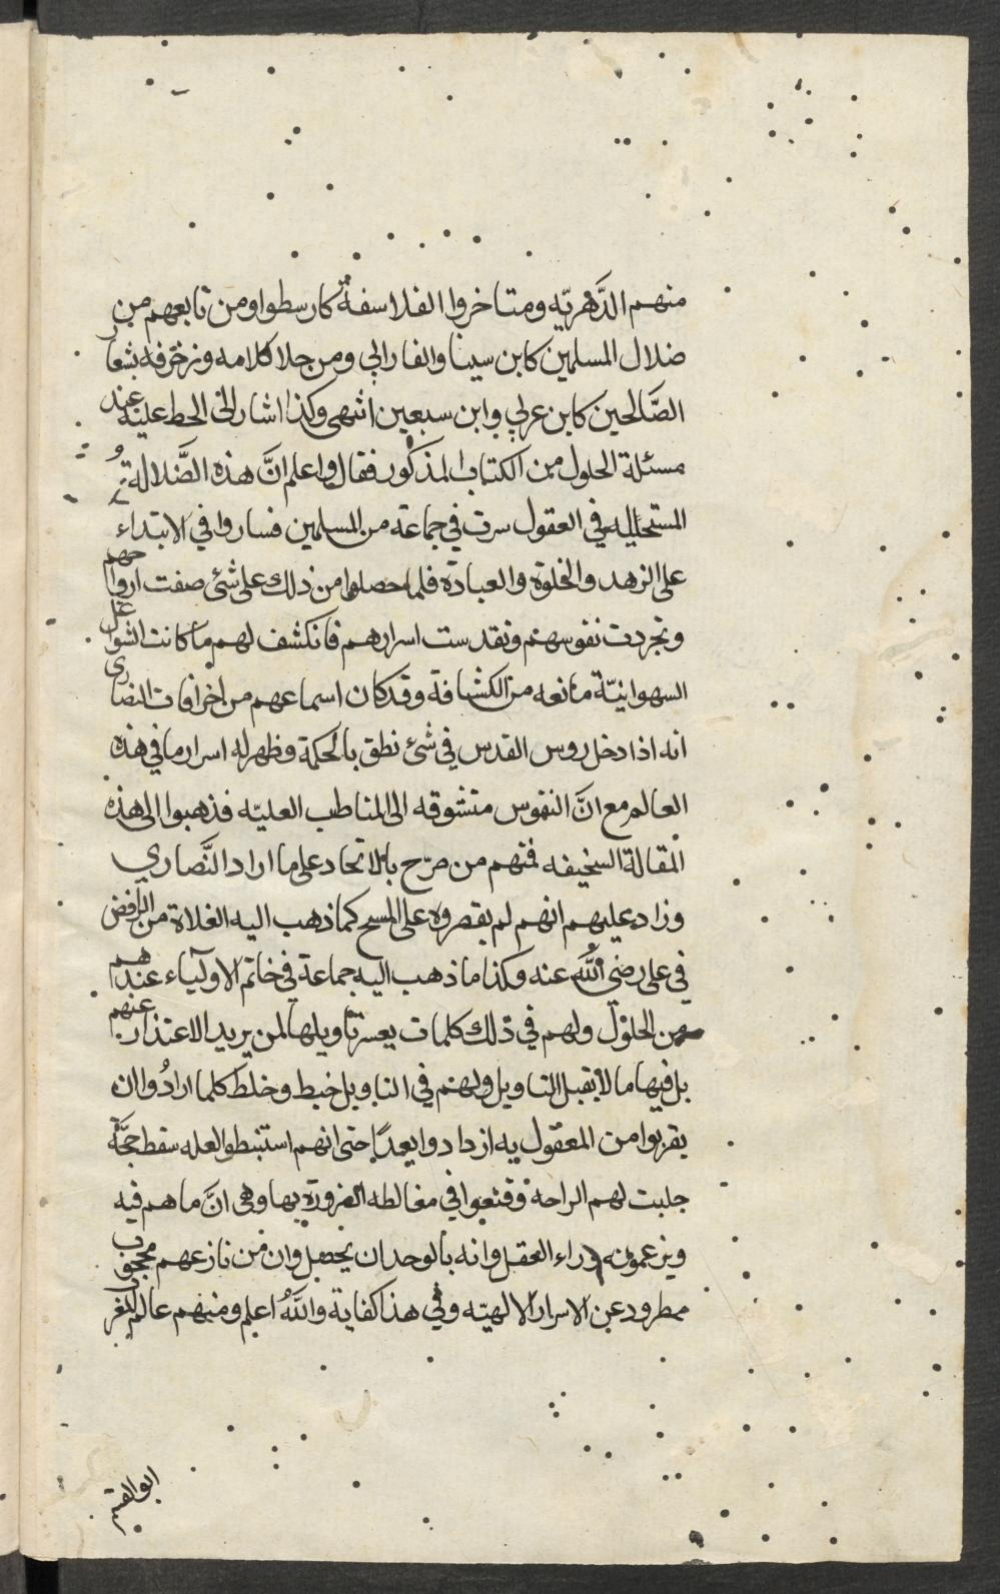 منهم الدَّهريّه ومتاخروا الفلاسفةُ كارسطوا ومن تابعهم من
ضلال المسلمين كابن سينا والفارابي ومن جلا كلامه وزخرفه بشعار
الصَّالحين كابن عربي وابن سبعين انتهى وكذا اشار الى الحط عليه عند
مسئلة الحلول من الكتاب المذكور فقال واعلم انَّ هذه الضَّلالة
المستحيله في العقول سرت في جماعة من المسلمين فساروا في الابتداء
على الزهد والخلوة والعبادة فلما حصلوا من ذلك على شئ صفت ارواحهم
وتجردت نفوسهم وتقدست اسرارهم فانكشف لهم ما كانت الشواغل
السهوانيّة مانعه من الكشافة وقد كان اسماعهم من اخرافات النصارى
انه اذا دخل روس القدس في شئ نطق بالحكمة وظهر له اسرار ما في هذه
العالم مع انَّ النفوس متشوقه الى المناطب العليّه فذهبوا الى هذه
المقالة السخيفه فمنهم من صرّح بالاتحاد على ما اراد النَّصاري
وزاد عليهم انهم لم يقصروه على المسيح كما ذهب اليه الغلاة من الرافض
في على رضي الله عنه وكذا ما ذهب اليه جماعة في خاتم الاولياء عندهم
من الحلول ولهم في ذلك كلمات يعسر تاويلها لمن يريد الاعتذار عنهم
بل فيها ما لا يقبل التاويل ولهم في التاويل خبط وخلط كلما ارادُوا ان
يقربوا من المعقول به ازدادوا بعدًا حتى انهم استنبطوا لعله سقط حجَّة
جلبت لهم الراحة وقنعوا في مغالطه الضرورة بها وهي انَّ ما هم فيه
ويزعمونه وراء العقل وانه بالوحدان يحصل وان من نازعهم محجوب
مطرود عن الاسرار الالهيّه وفي هذا كفاية والله اعلم ومنهم عالم الغر
ابو القسم